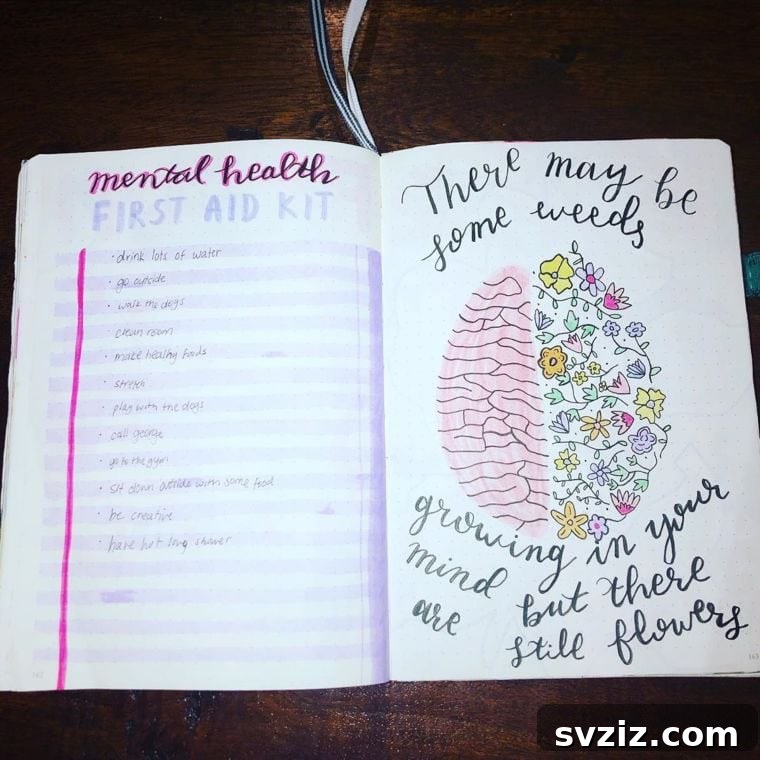 mental health
FIRST AID KIT
· drink lots of water
· go outside
· walk the dogs
· clean room
· make healthy foods
· stretch
· play with the dogs
· call george
· go to the gym
· sit down outside with some food
· be creative
· have hot long shower
There may be
some weeds
growing in your
mind but there
are still flowers
162
163
svziz.com